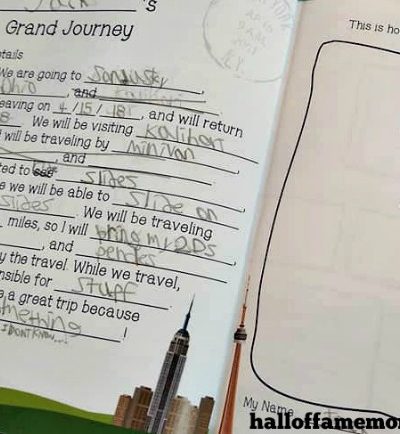 's
Grand Journey
etails
We are going to Sandusky,
Ohio, and
eaving on 4 / 15 / 18, and will return
8. We will be visiting Kalihari
will be traveling by minivan
, and
ted to see slides
e we will be able to slide on
slides. We will be traveling
miles, so I will bring my DS
, and
y the travel. While we travel,
nsible for stuff
e a great trip because
omething!
I DON'T KNOW...
This is ho
My Name
halloffamemo